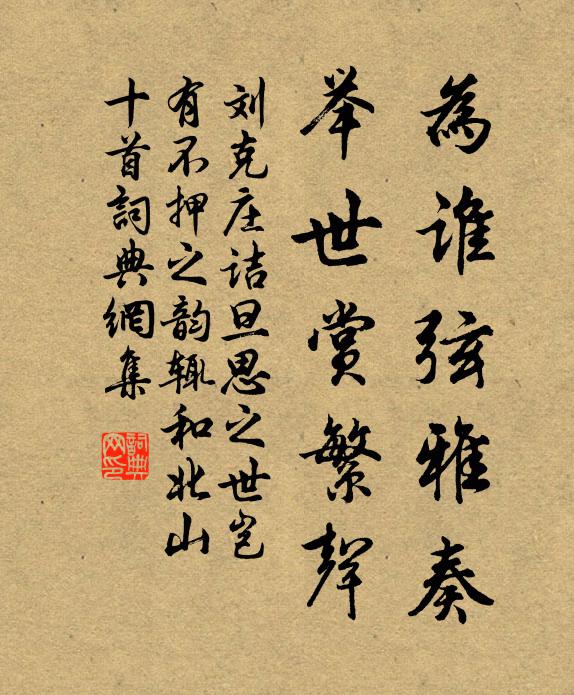 為谁弦雅奏
举世赏繁聲
刘克庄诘旦思之世岂
有不押之韵辄和北山
十首詞典網集
詞典網印